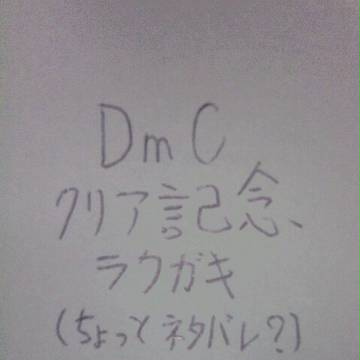 DmC
クリア記念、
ラクガキ
(ちょっとネタバレ?)